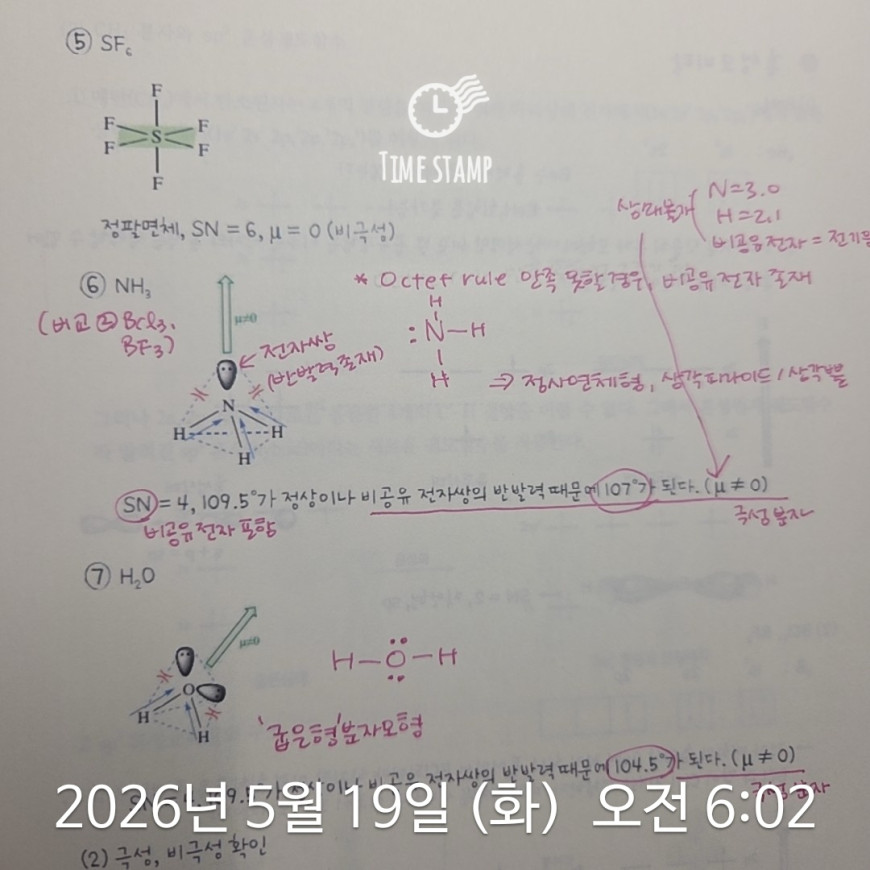 ⑤ SF₆
F
F F
S
F F
F
TIME STAMP
정팔면체, SN = 6, μ = 0 (비극성)
N=3.0
H=2.1
비공유전자 = 전기음
⑥ NH₃
(비교 ② BCl₃,
BF₃)
μ≠0
전자쌍
(반발력존재)
* Octet rule 만족 못할 경우, 비공유전자 존재
H
:N–H
H
⇒ 정사면체형, 삼각피라미드 / 삼각뿔
N
H H
H
SN = 4, 109.5°가 정상이나 비공유 전자쌍의 반발력 때문에 107°가 된다. (μ ≠ 0)
비공유전자 포함
극성 분자
⑦ H₂O
μ≠0
O
H
H
H–O–H
'굽은형' 분자모형
비공유 전자쌍의 반발력 때문에 104.5°가 된다. (μ ≠ 0)
극성 분자
2026년 5월 19일 (화) 오전 6:02
(2) 극성, 비극성 확인